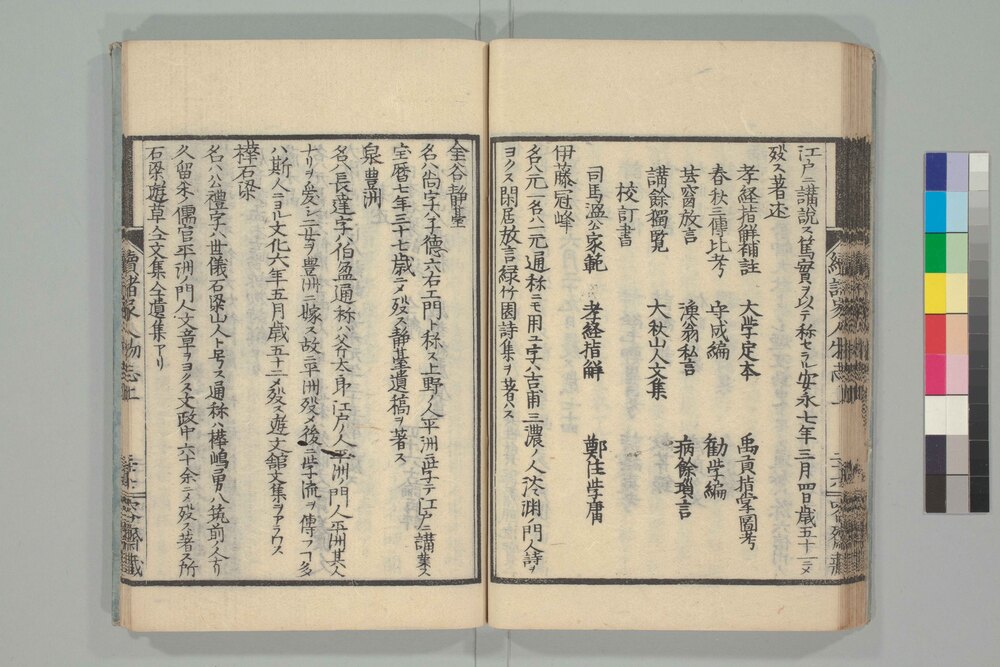 江戸ニ講説ス篤實ヲ以テ称セラル安永七年三月四日歳五十一ニメ
歿ス著述
孝経指解補註　大学定本　禹貢指掌圖考
春秋三傳比考　守成編　勧学編
芸窗放言　漁翁私言　病餘瑣言
講餘獨覧　大秋山人文集
校訂書
司馬溫公家範　孝経指解　鄭注学庸
伊藤冠峰
名ハ元一名ハ一元通称ニモ用ユ字ハ吉甫三濃ノ人淡渕ノ門人詩ヲ
ヨクス閑居放言緑竹園詩集ヲ著ハス
金谷靜臺
名ハ尚字ハ子德六右エ門ト称ス上野ノ人平洲ニ学テ江戸ニ講業ス
宝暦七年三十七歳ニメ歿ス靜臺遺稿ヲ著ス
泉豊洲
名ハ長達字ハ伯盈通称ハ斧太郎江戸ノ人平洲ノ門人平洲其人
ナリヲ愛シ二女ヲ豊洲ニ嫁ス故ニ平洲歿メ後ニ学流ヲ傳フルコト多
ハ斯人ニヨル文化六年五月歳五十二メ歿ス遊文舘文集ヲアラワス
樺石梁
名ハ公禮字ハ世儀石梁山人ト号ス通称ハ樺嶋勇八筑前ノ人ナリ
久留米ノ儒官平洲ノ門人文章ヲヨクス文政中六十余ニメ歿ス著ス所
石梁遊草仝文集仝遺集アリ
續諸家人物志上